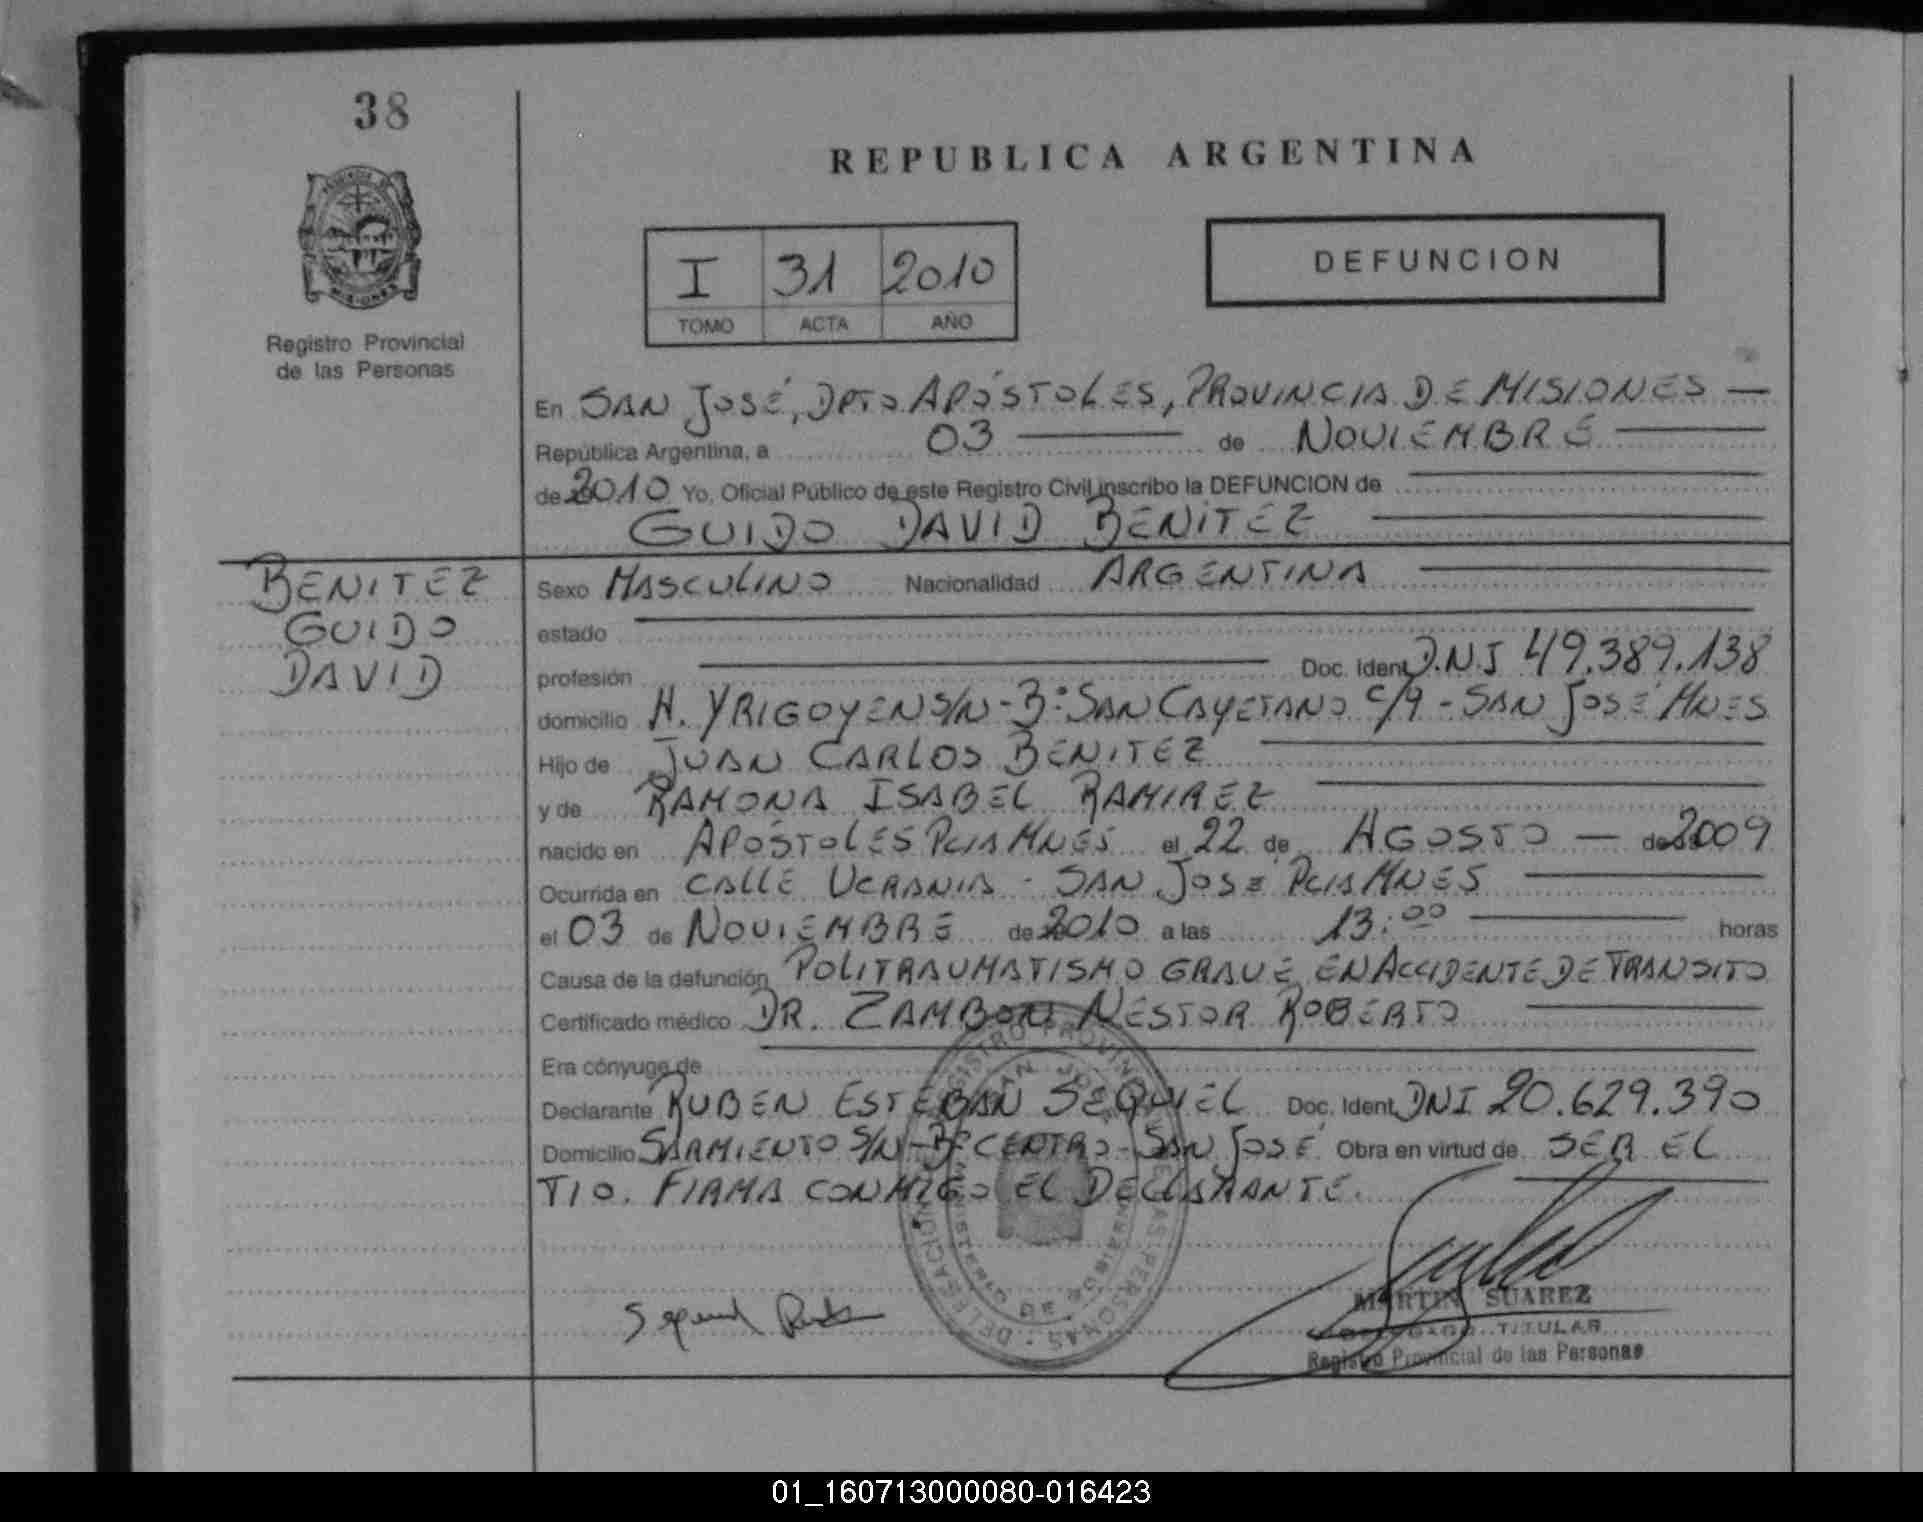 38
REPUBLICA ARGENTINA
PROVINCIA DE
MISIONES
Registro Provincial
de las Personas
I 31 2010
TOMO ACTA AÑO
DEFUNCION
En SAN JOSÉ, DPTO APÓSTOLES, PROVINCIA DE MISIONES —
República Argentina, a 03 — de NOVIEMBRE —
de 2010 Yo, Oficial Público de este Registro Civil inscribo la DEFUNCION de
GUIDO DAVID BENITEZ
BENITEZ
GUIDO
DAVID
Sexo MASCULINO Nacionalidad ARGENTINA
estado
profesión Doc. Ident. D.N.I 49.389.138
domicilio H. YRIGOYEN S/N - B° SAN CAYETANO C/9 - SAN JOSÉ MNES
Hijo de JUAN CARLOS BENITEZ
y de RAMONA ISABEL RAMIREZ
nacido en APÓSTOLES PCIA MNES el 22 de AGOSTO — de 2009
Ocurrida en CALLE UCRANIA - SAN JOSÉ PCIA MNES
el 03 de NOVIEMBRE de 2010 a las 13:00 horas
Causa de la defunción POLITRAUMATISMO GRAVE, EN ACCIDENTE DE TRANSITO
Certificado médico DR. ZAMBON NESTOR ROBERTO
Era cónyuge de
Declarante RUBEN ESTEBAN SEQUIEL Doc. Ident. DNI 20.629.390
Domicilio SARMIENTO S/N - B° CENTRO - SAN JOSÉ Obra en virtud de SER EL
TIO. FIRMA CONMIGO EL DECLARANTE.
MARTIN SUAREZ
DELEGADO TITULAR
Registro Provincial de las Personas
01_160713000080-016423